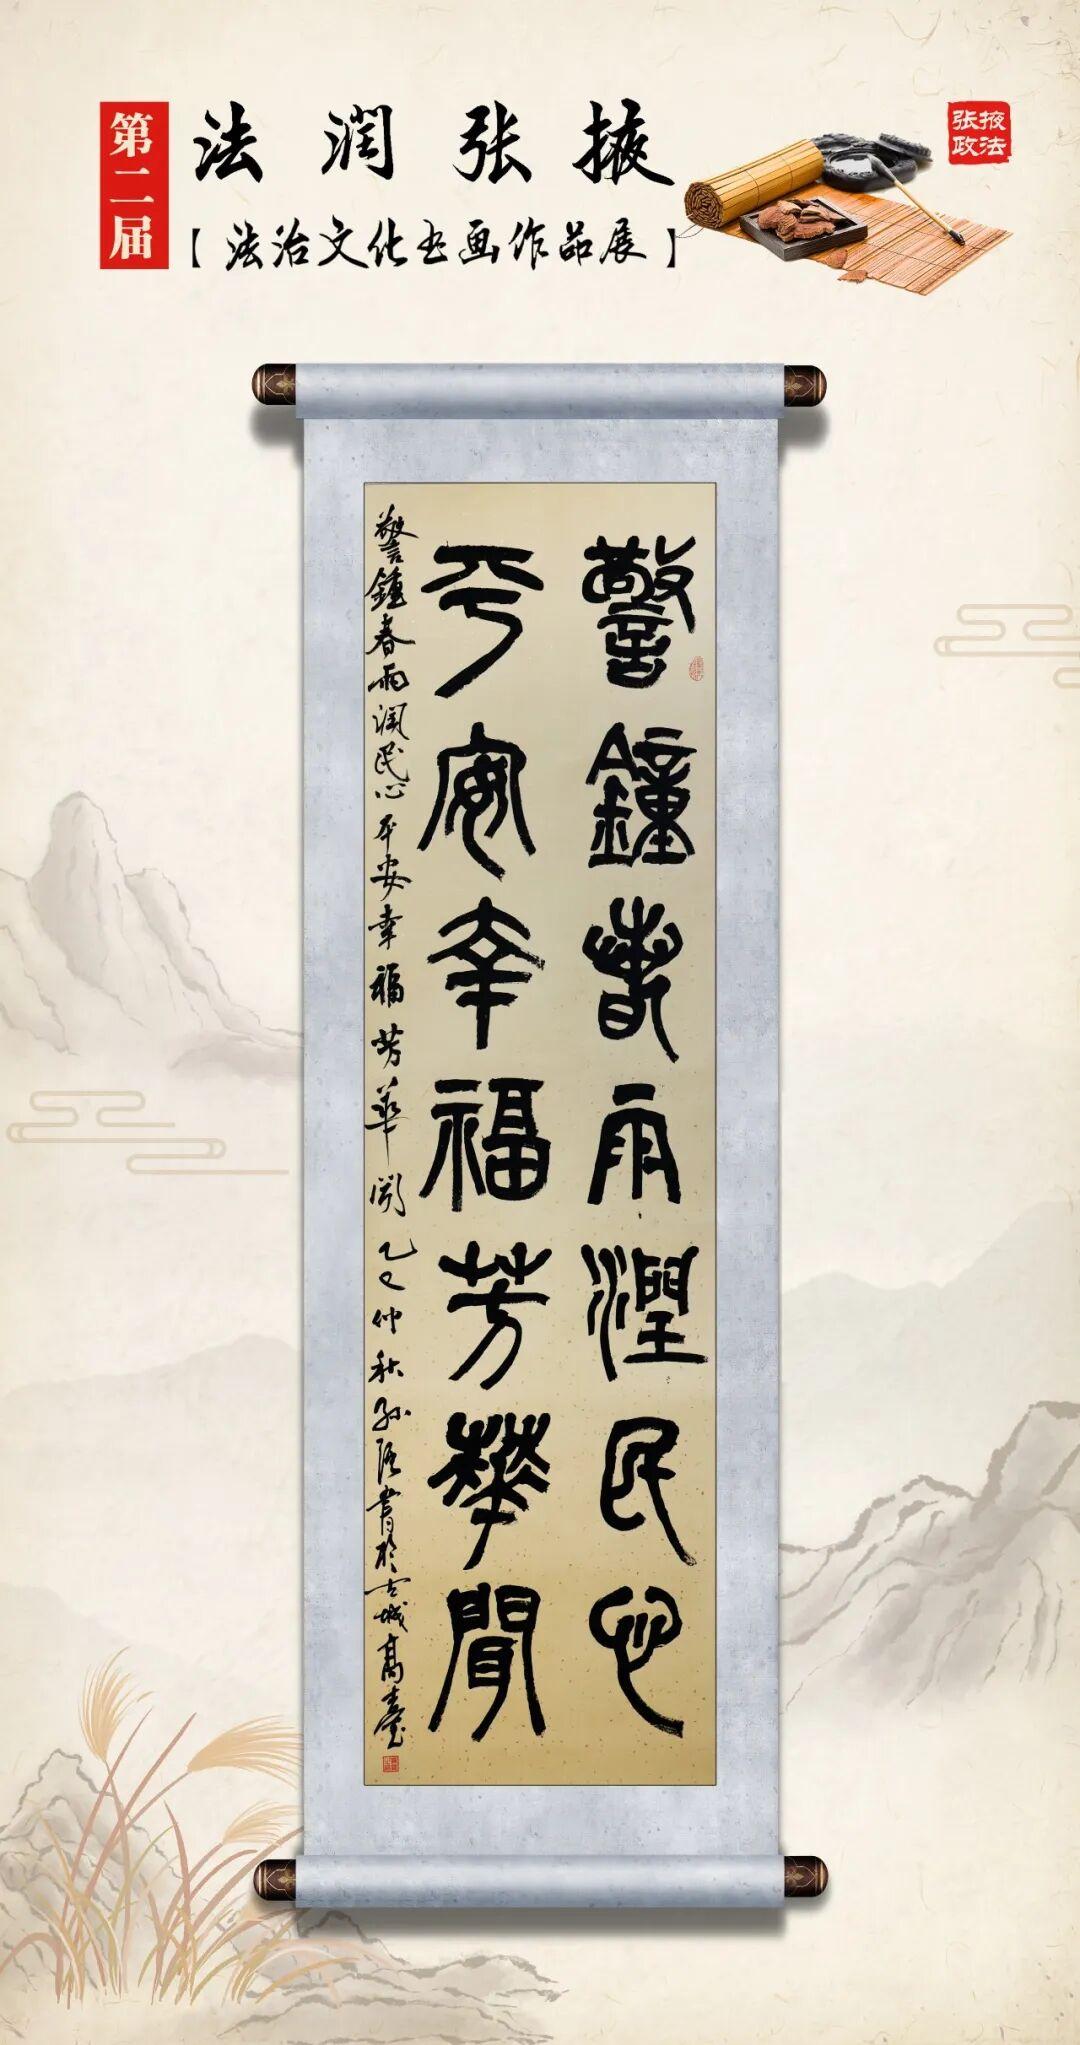 第二届
法润张掖
【法治文化书画作品展】
张掖
政法
警鐘春雨潤民心
平安幸福芳華聞
警鐘春雨润民心平安幸福芳華闻乙巳仲秋孙
書於古城高臺